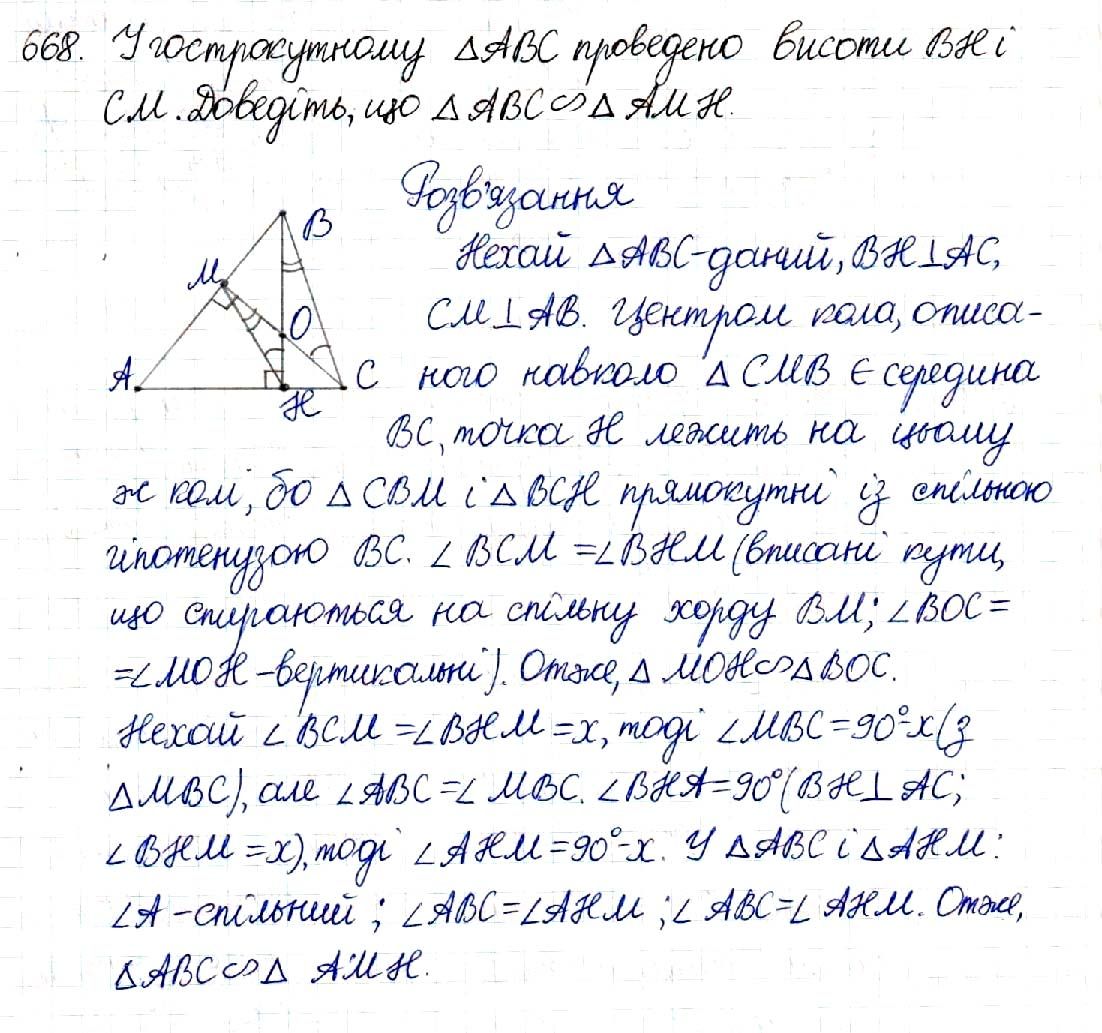 668. У гострокутному △ABC проведено висоти BH і
CM. Доведіть, що △ABC ∽ △AMH.
Розв'язання
B
M
O
A
C
H
Нехай △ABC - даний, BH⊥AC,
CM⊥AB. Центром кола, описа-
ного навколо △CMB є середина
BC, точка H лежить на цьому
ж колі, бо △CBM і △BCH прямокутні із спільною
гіпотенузою BC. ∠BCM = ∠BHM (вписані кути,
що спираються на спільну хорду BM; ∠BOC =
= ∠MOH - вертикальні). Отже, △MOH ∽ △BOC.
Нехай ∠BCM = ∠BHM = x, тоді ∠MBC = 90° - x (з
△MBC), але ∠ABC = ∠MBC. ∠BHA = 90° (BH⊥AC;
∠BHM = x), тоді ∠AHM = 90° - x. У △ABC і △AHM:
∠A - спільний; ∠ABC = ∠AHM; ∠ABC = ∠AHM. Отже,
△ABC ∽ △AMH.